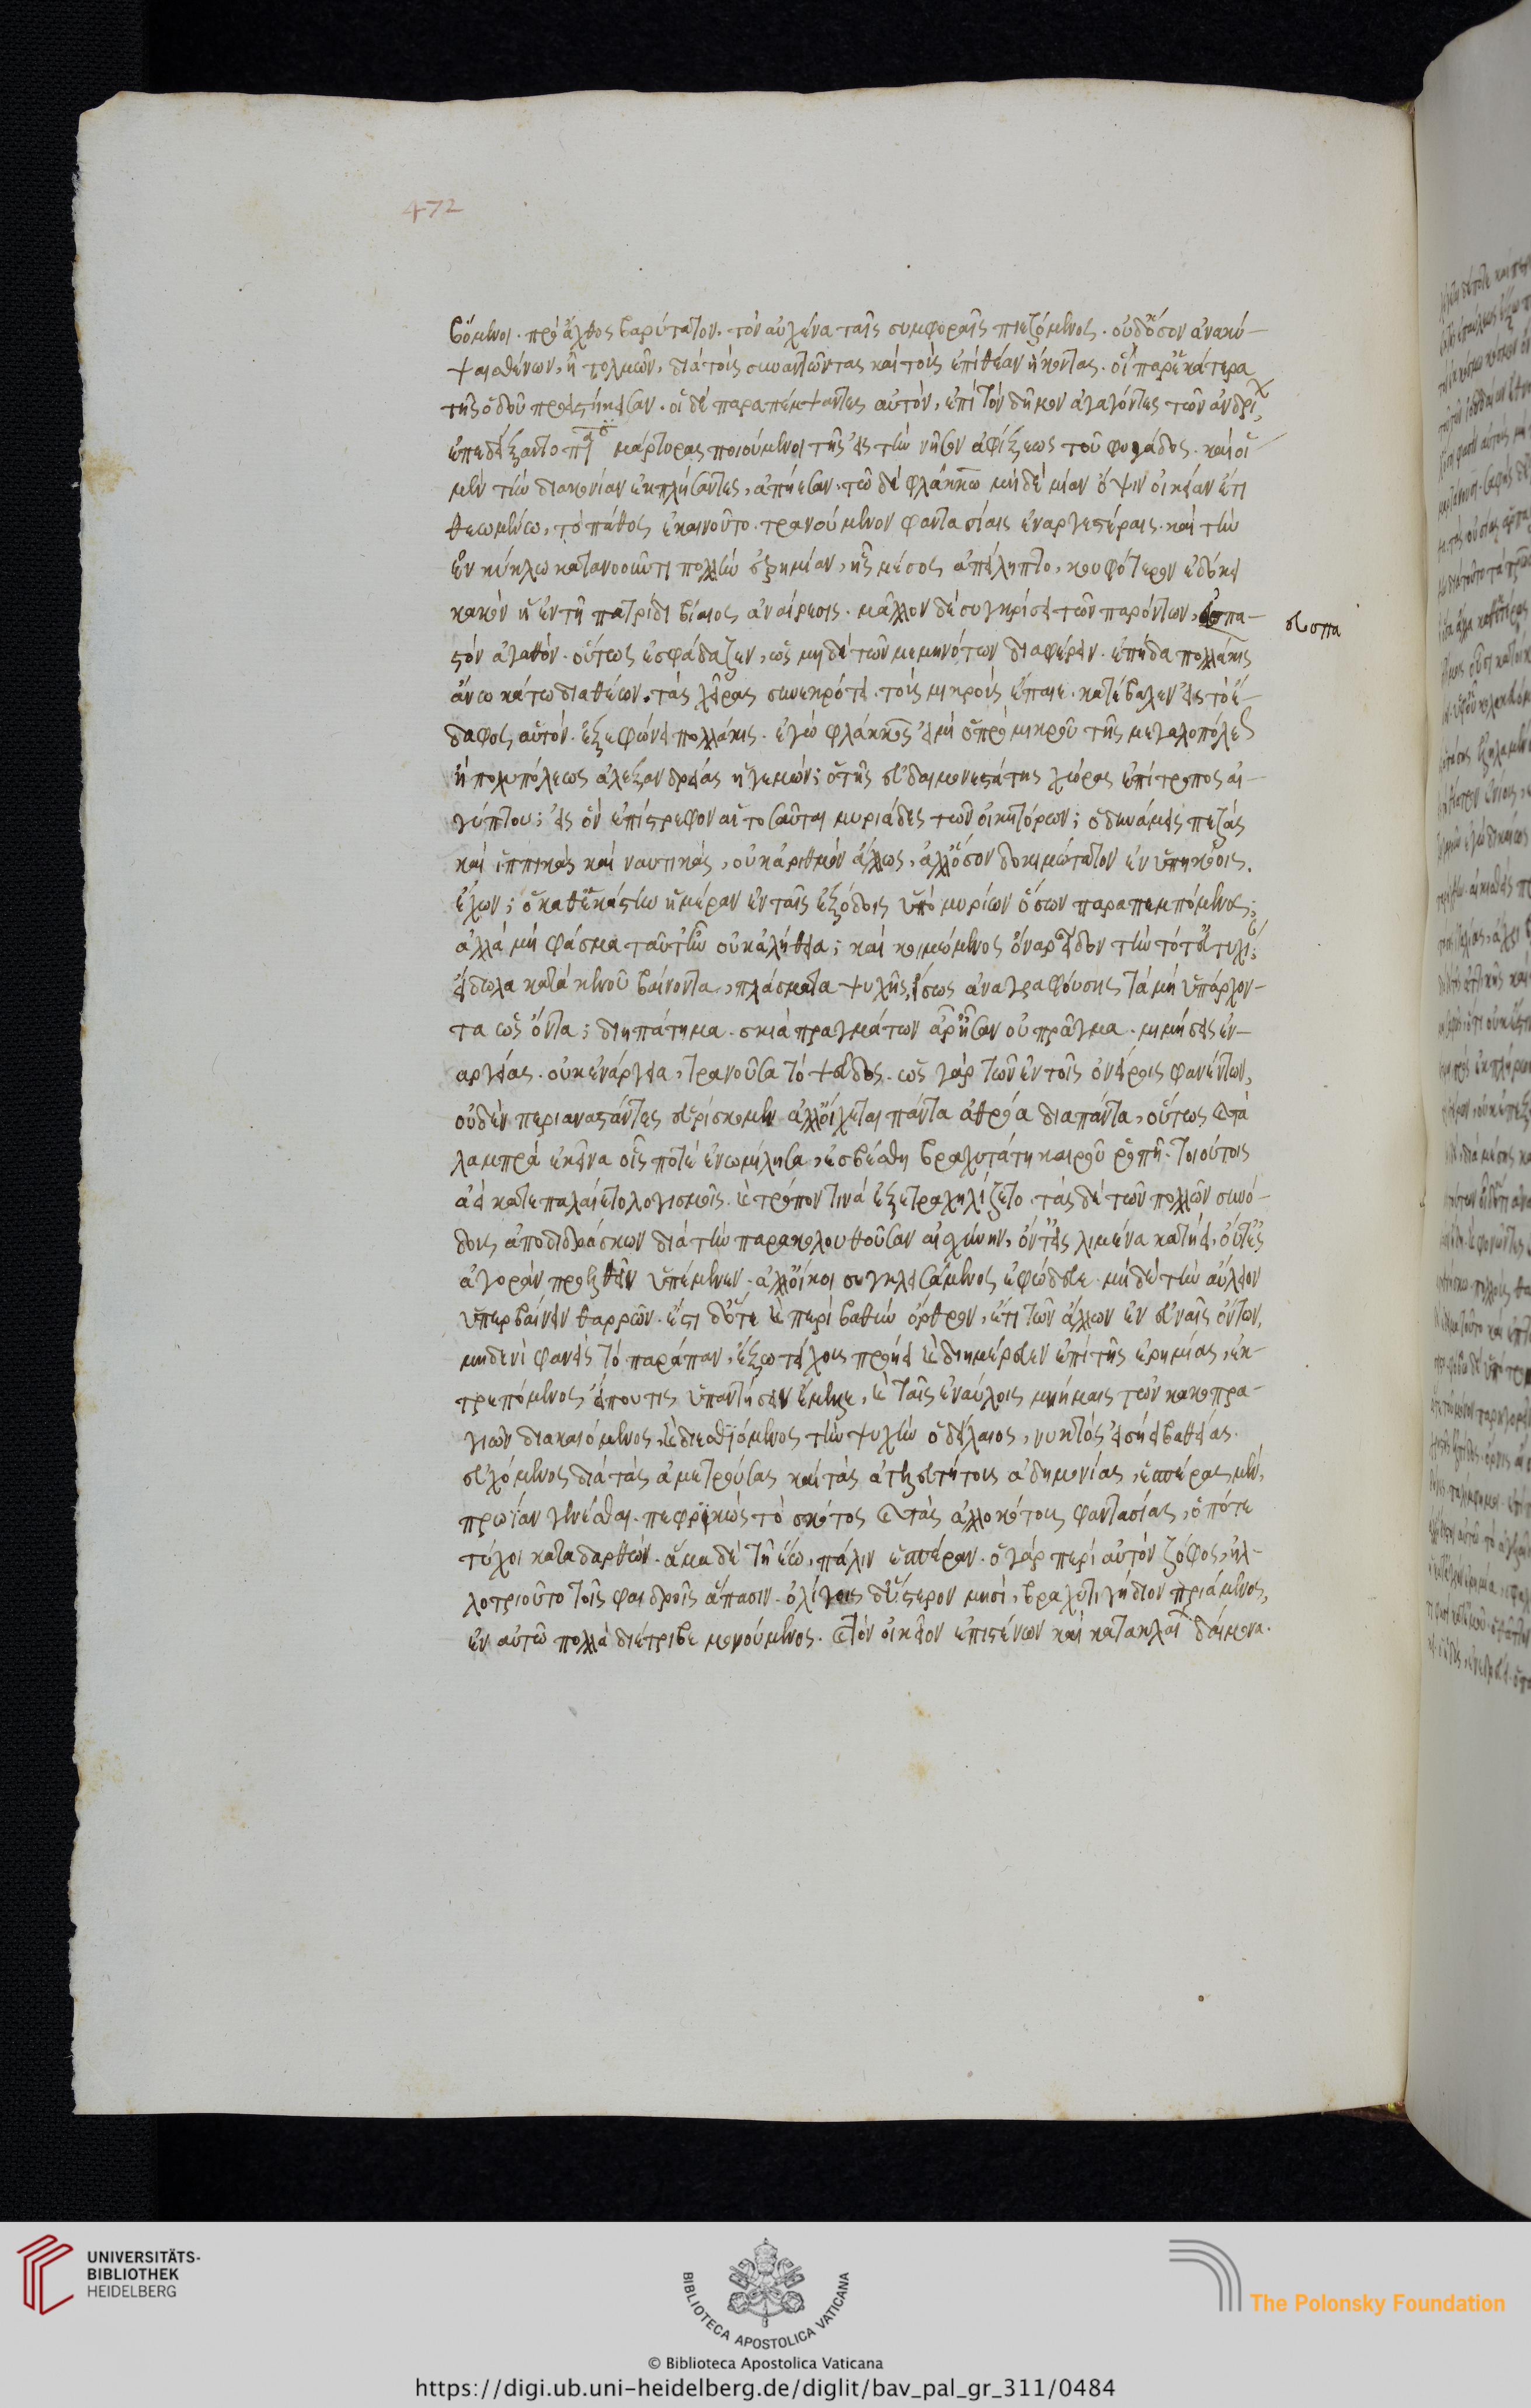 472
βόμενοι. πρὸ ἄχθος βαρύτατον. τὸν αὐχένα ταῖς συμφοραῖς πιεζόμενος. οὐδ' ὅσον ἀνακύ-
ψαι σθένων, ἢ τολμῶν, διὰ τοὺς συναντῶντας καὶ τοὺς ἐπὶ θέαν ἥκοντας. οἳ παρ' ἑκάτερα
τῆς ὁδοῦ προεστήκεισαν. οἱ δὲ παραπέμψαντες αὐτὸν, ἐπὶ τὸν δῆμον ἀγαγόντες τῶν ἀνδρί,
ἐπεδείξαντο μάρτυρας ποιούμενοι τῆς εἰς τὴν νῆσον ἀφίξεως τοῦ φυγάδος. καὶ οἱ
μὲν τὴν διακονίαν ἐκπλήσαντες, ἀπῄεσαν. τῶ δὲ φλάκκω μηδεμίαν ὄψιν οἰκείαν ἔτι
θεωμένω, τὸ πάθος ἐκαινοῦτο. τρανούμενον φαντασίαις ἐναργεστέραις. καὶ τὴν
ἐν κύκλω κατανοοῦντι πολλὴν ἐρημίαν, ἧς μέσος ἀπείληπτο, κουφότερον ἐδόκει
κακὸν ἡ ἐν τῆ πατρίδι βίαιος ἀναίρεσις. μᾶλλον δὲ συγκρίσει τῶν παρόντων, ἀσπα- εὐσπα
στὸν ἀγαθόν. οὕτως ἐσφάδαζεν, ὡς μηδὲ τῶν μεμηνότων διαφέρειν. ἐπήδα πολλάκις
ἄνω κάτω διαθέων. τὰς χεῖρας συνεκρότει. τοὺς μηροὺς ἔπαιε. κατέβαλεν εἰς τὸ ἔ-
δαφος αὑτόν. ἐξεφώνει πολλάκις. ἐγὼ φλάκκος εἰμὶ ὁ πρὸ μικροῦ τῆς μεγαλοπόλεως
ἢ πολυπόλεως ἀλεξανδρείας ἡγεμών; ὁ τῆς εὐδαιμονεστάτης χώρας ἐπίτροπος αἰ-
γύπτου; εἰς ὃν ἐπέστρεφον αἱ τοσαῦται μυριάδες τῶν οἰκητόρων; ὁ δυνάμεις πεζὰς
καὶ ἱππικὰς καὶ ναυτικὰς, οὐκ ἀριθμὸν ἄλλως, ἀλλ' ὅσον δοκιμώτατον ἐν ὑπηκόοις.
ἔχων; ὁ καθ' ἑκάστην ἡμέραν ἐν ταῖς ἐξόδοις ὑπὸ μυρίων ὅσων παραπεμπόμενος;
ἀλλὰ μὴ φάσμα ταῦτ' ἦν οὐκ ἀλήθεια; καὶ κοιμώμενος ὄναρ εἶδον τὴν τότ' εὐτυχί;
εἴδωλα κατὰ κενοῦ βαίνοντα, πλάσματα ψυχῆς, ἴσως ἀναγραφούσης τὰ μὴ ὑπάρχον-
τα ὡς ὄντα; διηπάτημα. σκιὰ πραγμάτων ἄρ' ἦσαν οὐ πρᾶγμα. μιμήσεις ἐν-
αργείας. οὐκ ἐνάργεια, τρανοῦσα τὸ ψεῦδος. ὡς γὰρ τῶν ἐν τοῖς ὀνείροις φανέντων,
οὐδὲν περιαναστάντες εὑρίσκομεν ἀλλ' οἴχεται πάντα ἀθρόα διαπάντα, οὕτως καὶ τὰ
λαμπρὰ ἐκεῖνα οἷς ποτὲ ἐνωμίλησα, ἐσβέσθη βραχυτάτη καιροῦ ῥοπῆ. τοιούτοις
ἀεὶ κατεπαλαίετο λογισμοῖς. καὶ τρόπον τινὰ ἐξετραχηλίζετο. τὰς δὲ τῶν πολλῶν συνό-
δους ἀποδιδράσκων διὰ τὴν παρακολουθοῦσαν αἰσχύνην, οὔτ' εἰς λιμένα κατῄει, οὔτ' εἰς
ἀγορὰν προελθεῖν ὑπέμεινεν. ἀλλ' οἴκοι συγκλεισάμενος ἐφώδευε. μηδὲ τὴν αὔλειον
ὑπερβαίνειν θαρρῶν. ἔστι δ' ὅτε καὶ περὶ βαθὺν ὄρθρον, ἔτι τῶν ἄλλων ἐν εὐναῖς ὄντων,
μηδενὶ φανεὶς τὸ παράπαν, ἔξω τείχους προῄει καὶ διημέρευεν ἐπὶ τῆς ἐρημίας, ἐκ-
τρεπόμενος εἴπου τις ὑπαντήσειν ἔμελλε, καὶ ταῖς ἐναύλοις μνήμαις τῶν κακοπρα-
γιῶν διακαιόμενος, καὶ διεσθιόμενος τὴν ψυχὴν ὁ δείλαιος, νυκτὸς εἰσῄει βαθείας.
εὐχόμενος διὰ τὰς ἀμέτρους καὶ τὰς ἀτελευτήτους ἀδημονίας, ἑσπέρας μὲν,
πρωίαν γενέσθαι. πεφρικὼς τὸ σκότος καὶ τὰς ἀλλοκότους φαντασίας, ὁπότε
τύχοι καταδαρθών. ἅμα δὲ τῆ ἕω, πάλιν ἑσπέραν. ὁ γὰρ περὶ αὐτὸν ζόφος, ἠλ-
λοτριοῦτο τοῖς φαιδροῖς ἅπασιν. ὀλίγοις δ' ὕστερον μησὶ, βραχύ τι γήδιον πριάμενος,
ἐν αὐτῶ πολλὰ διέτριβε μονούμενος. καὶ τὸν οἰκεῖον ἐπιστένων καὶ κατακλαίων δαίμονα.
UNIVERSITÄTS-
BIBLIOTHEK
HEIDELBERG
BIBLIOTECA APOSTOLICA VATICANA
The Polonsky Foundation
© Biblioteca Apostolica Vaticana
https://digi.ub.uni-heidelberg.de/diglit/bav_pal_gr_311/0484